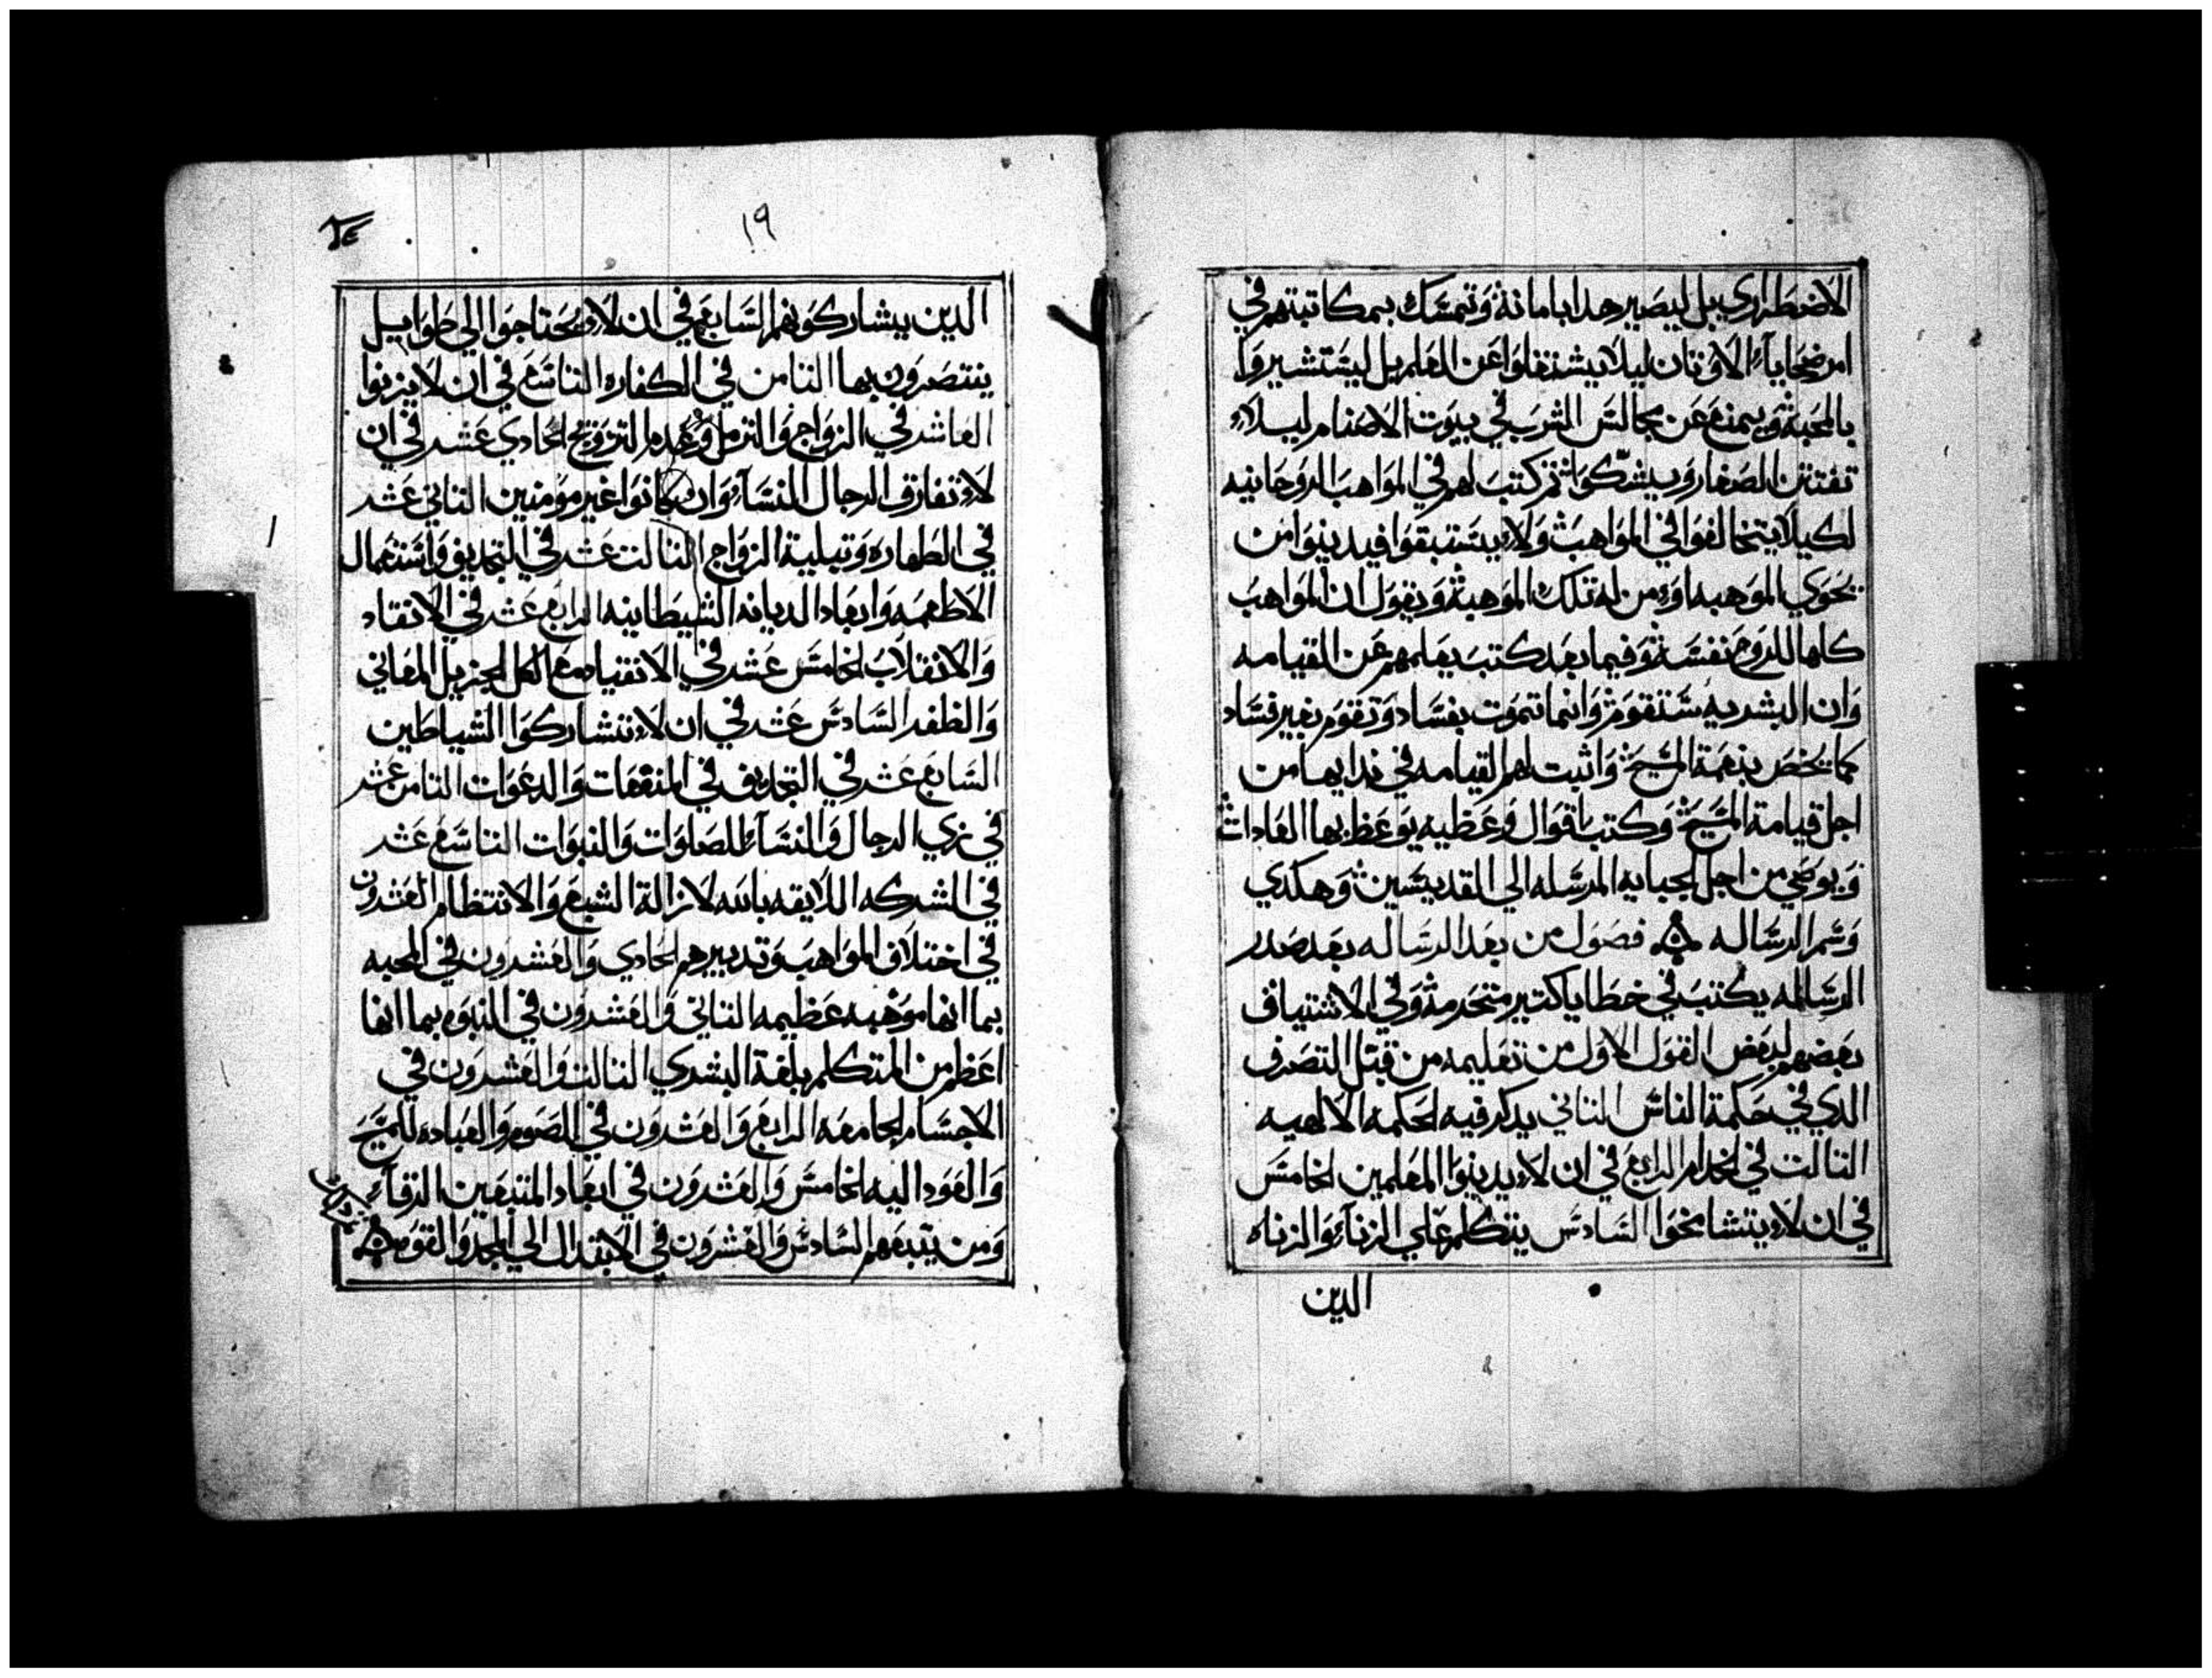 الاضطراري بل ليصير هدا بامانة وتمسك بمكاتبتهم في
امر ضحايا الاوتان ليلا يشتغلوا عن العلم بل ليستشيروا
بالمحبة ويمنع عن مجالس الشرب في بيوت الاصنام ليلا
تفتتن الصغار ويشكوا تم كتب لهم في المواهب الروحانيه
لكيلا يتخالفوا في المواهب ولا يستبقوا فيدينوا من
يحوي الموهبه او من له تلك الموهبة ويقول ان المواهب
كلها للروح نفسه وفيما بعد كتب يعلمهم عن القيامه
وان البشريه ستقوم وانما تموت بفساد وتقوم بغير فساد
كما يخص بنعمة المسيح واتبت لهم القيامه في ندايها من
اجل قيامة المسيح وكتب اقوال وعظيه يوعظ بها العادات
ويوصي من اجل الجبايه المرسله الي القديسين وهكدي
وسم الرساله فصول من بعد الرساله بعد صدر
الرساله يكتب في خطايا كتير متحرمه وفي الاشتياف
بعضهم لبعض القول الاول من تعليمه من قبل التصرف
الدي في حكمة الناس التاني يدكر فيه الحكمه الالهيه
التالت في الخدام الرابع في ان لا يدينوا المعلمين الخامس
في ان لا يتشامخوا السادس يتكلم علي الزناء والزناه
الدين
١٩
الدين يشاركونهم السابع في ان لا يحتاجوا الي طوابيل
ينتصرون بها التامن في الكفاره التاسع في ان لا يزنوا
العاشر في الزواج والترمل وعدم التزويج الحادي عشر في ان
لا تفارق الرجال النساء وان كانوا غير مومنين التاني عشر
في الطهاره وتبلية الزواج التالت عشر في التجديف واستعمال
الاطعمه وابعاد الديانه الشيطانيه الرابع عشر في الانقاد
والانقلاب الخامس عشر في الانقياد مع الكل الجزيل المعاني
والظفر السادس عشر في ان لا تتشاركوا الشياطين
السابع عشر في التجديف في المنفعات والدعوات التامن عشر
في زي الرجال والنساء للصلوات والنبوات التاسع عشر
في الشركه اللايقه بالله لازالة الشبع والانتظام العشرون
في اختلاف المواهب وتدبيرهم الحادي والعشرون في المحبه
بما انها موهبه عظيمه التاني والعشرون في النبوه بما انها
اعظم من المتكلم بلغة البشري التالت والعشرون في
الاجسام الجامعه الرابع والعشرون في الصوم والعباده للمسيح
والعود اليه الخامس والعشرون في ابعاد المتبعين الرقاء
ومن يتبعهم السادس والعشرون في الابتدال الي المجد والقوه